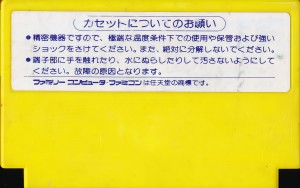 カセットについてのお願い
●精密機器ですので、極端な温度条件下での使用や保管および強い
ショックをさけてください。また、絶対に分解しないでください。
●端子部に手を触れたり、水にぬらしたりして汚さないようにして
ください。故障の原因となります。
ファミリーコンピュータ・ファミコンは任天堂の商標です。